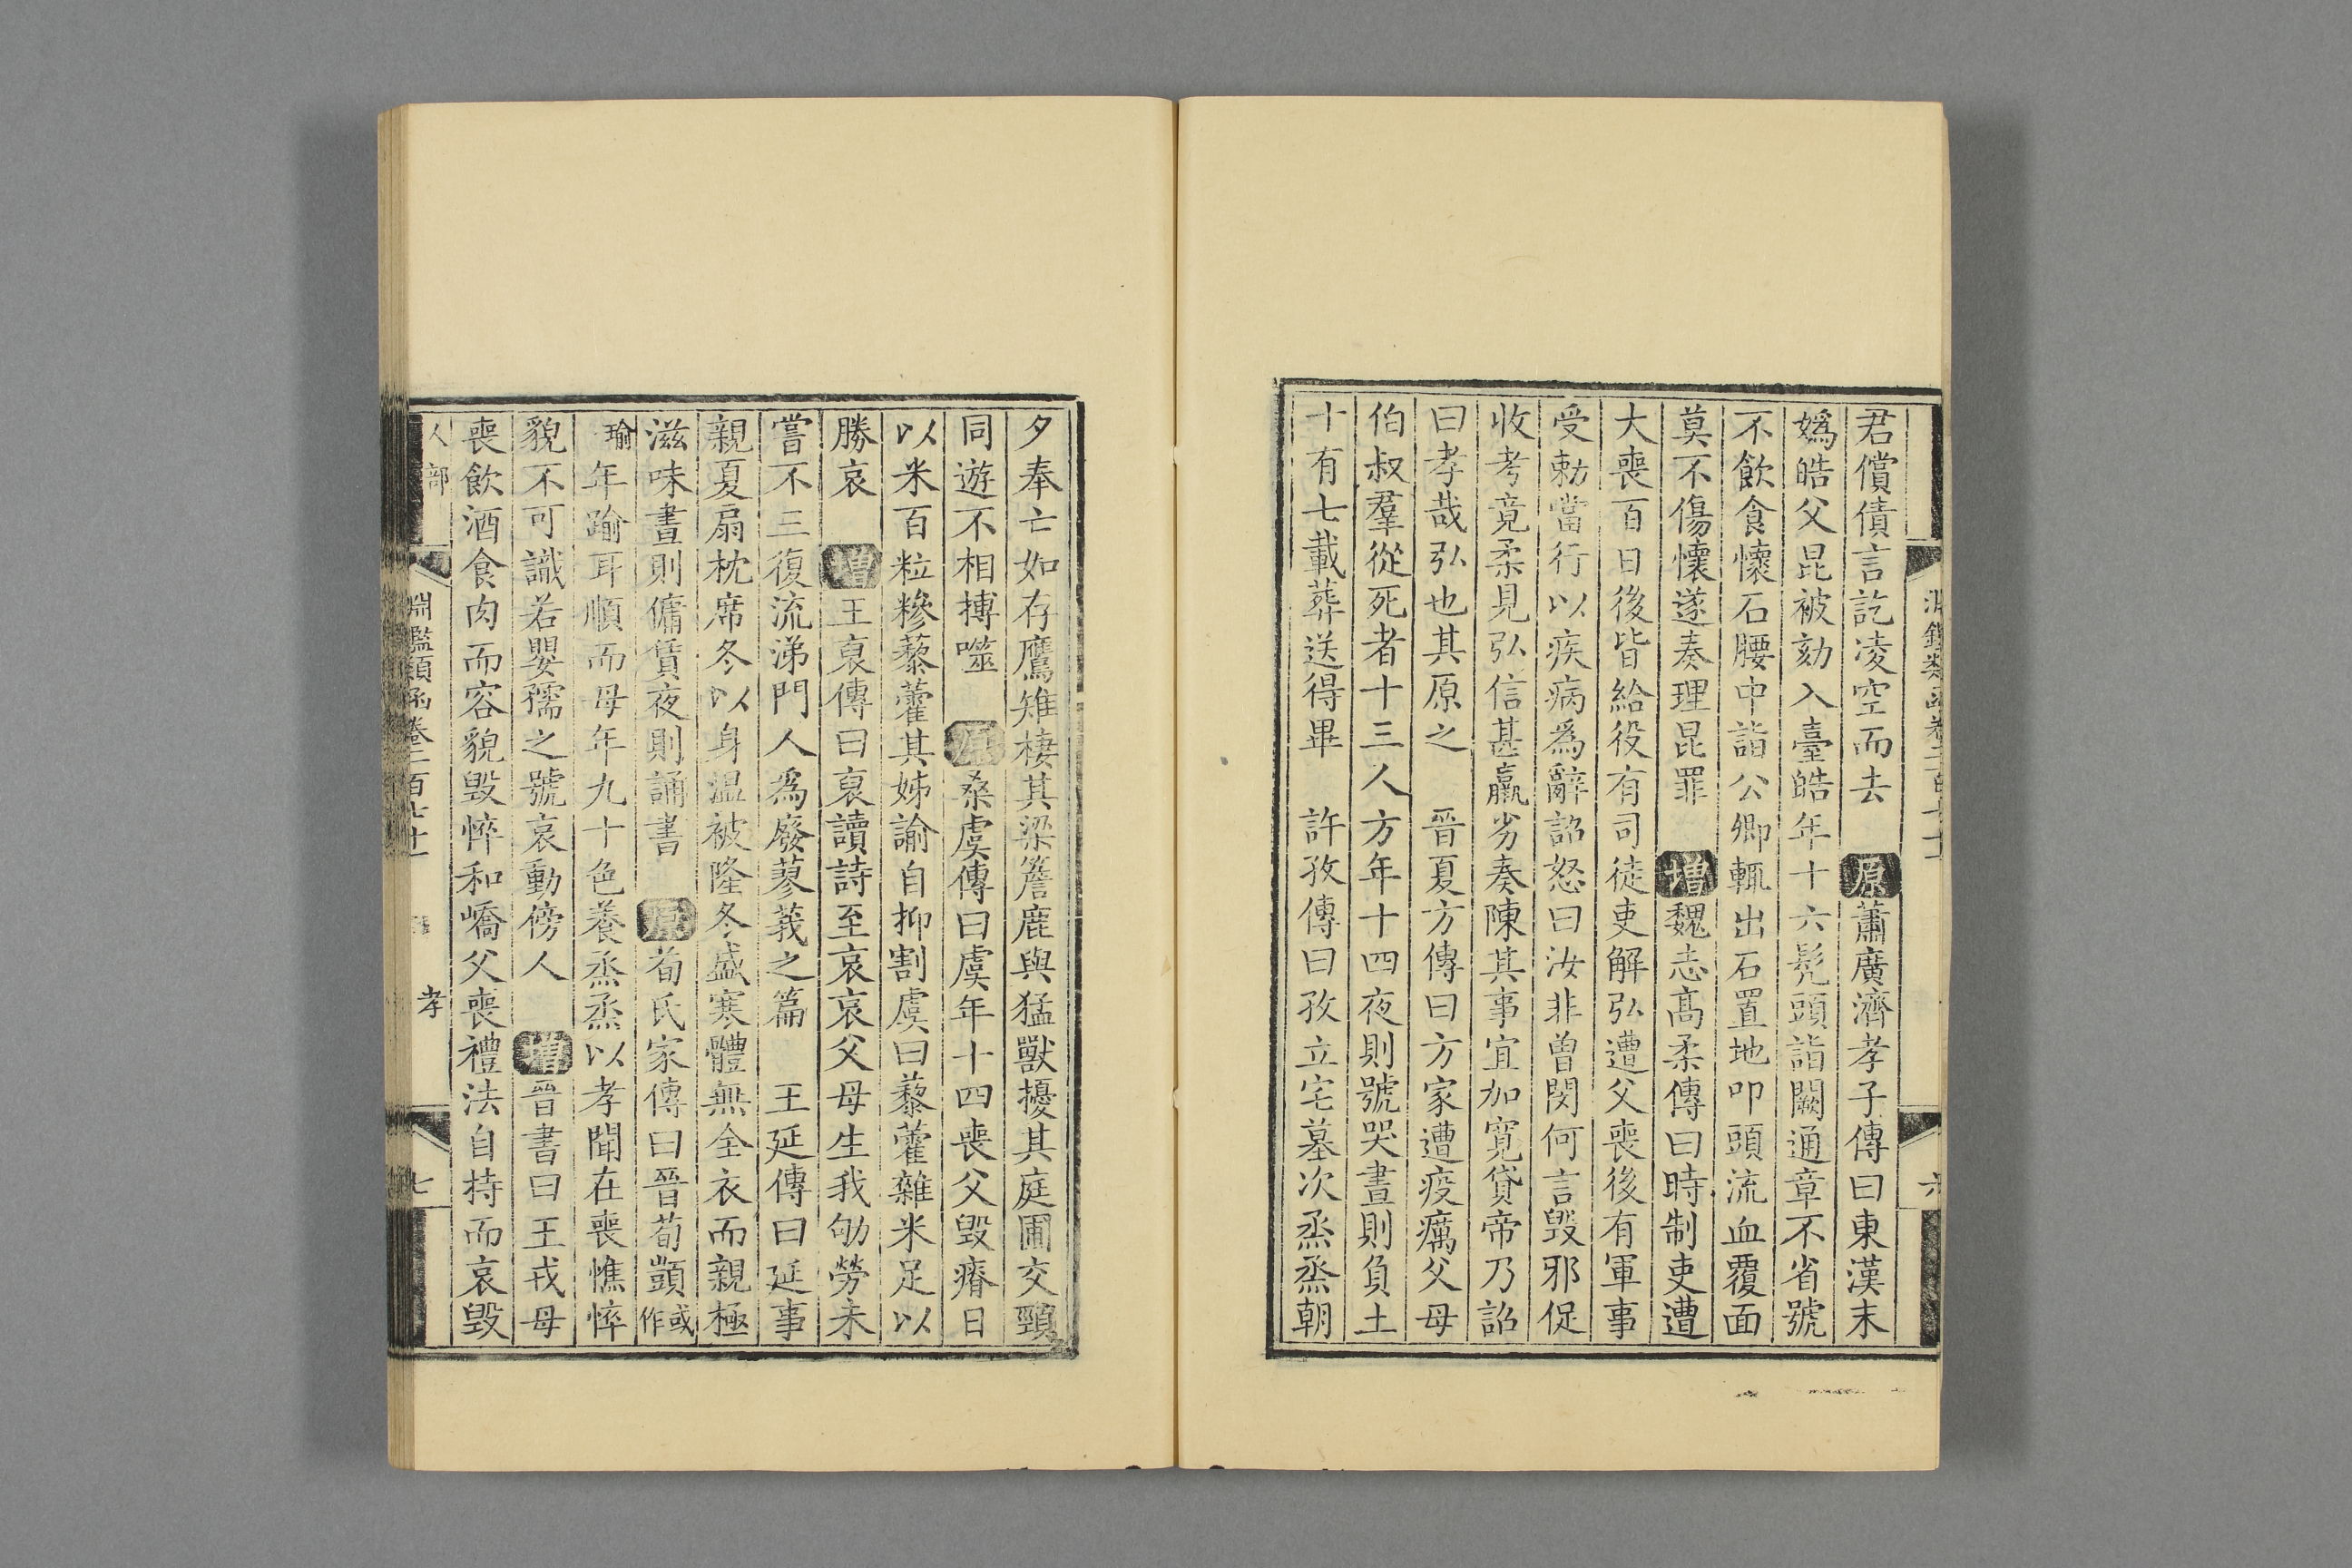 君償債言訖凌空而去　原蕭廣濟孝子傳曰東漢末
嬀皓父昆被劾入臺皓年十六髠頭詣闕通章不省號
不飲食懷石腰中詣公卿輒出石置地叩頭流血覆面
莫不傷懷遂奏理昆罪　增魏志高柔傳曰時制吏遭
大喪百日後皆給役有司徒吏解弘遭父喪後有軍事
受勅當行以疾病爲辭詔怒曰汝非曾閔何言毀邪促
收考竟柔見弘信甚羸劣奏陳其事宜加寬貸帝乃詔
曰孝哉弘也其原之　晉夏方傳曰方家遭疫癘父母
伯叔羣從死者十三人方年十四夜則號哭晝則負土
十有七載葬送得畢　許孜傳曰孜立宅墓次烝烝朝
淵鑑類函卷二百七十一
六
夕奉亡如存鷹雉棲其梁簷鹿與猛獸擾其庭圃交頸
同遊不相搏噬　原桑虞傳曰虞年十四喪父毀瘠日
以米百粒糝藜藿其姊諭自抑割虞曰藜藿雜米足以
勝哀　增王裒傳曰裒讀詩至哀哀父母生我劬勞未
嘗不三復流涕門人爲廢蓼莪之篇　王延傳曰延事
親夏扇枕席冬以身温被隆冬盛寒體無全衣而親極
滋味晝則傭賃夜則誦書　原荀氏家傳曰晉荀顗或作
瑜年踰耳順而母年九十色養烝烝以孝聞在喪憔悴
貌不可識若嬰孺之號哀動傍人　增晉書曰王戎母
喪飲酒食肉而容貌毀悴和嶠父喪禮法自持而哀毀
人部
淵鑑類函卷二百七十一
孝
七